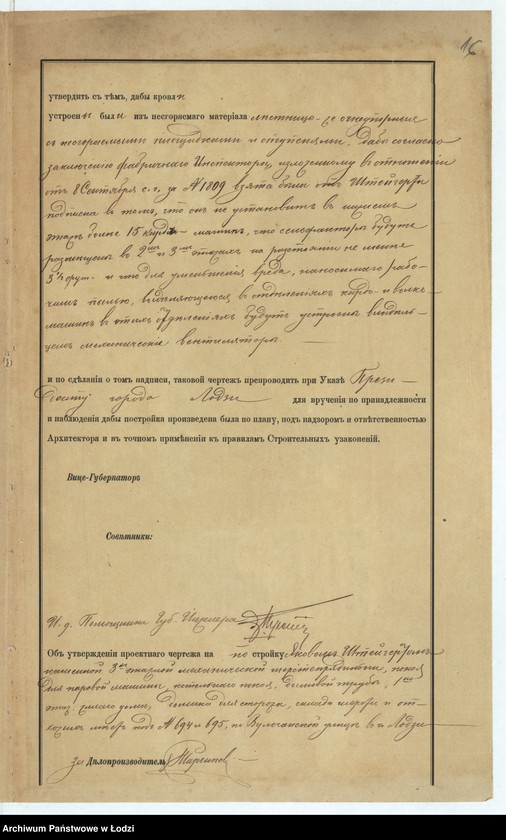 16
утвердить съ тѣмъ, дабы кровля
устроены были изъ несгораемаго матеріала лестницы съ
съ несгораемыми площадками и ступенями, дабы согласно
заключенію фабричнаго Инспектора, изложенному въ отношеніи
отъ 8 Сентября с.г. за № 1809 взята была отъ Штейгерта
подписка въ томъ, что онъ не установитъ въ
этажѣ болѣе 15 кардъ-машинъ, что будутъ
размѣщены въ 2мъ и 3мъ этажахъ на разстояніи не менѣе
3½ фут. и что для уменьшенія вреда, наносимаго рабо-
чимъ пылью, выдѣляющеюся въ отдѣленіяхъ кардъ и волкъ-
машинъ въ этихъ отдѣленіяхъ будутъ устроены
механическіе вентиляторы.
и по сдѣланіи о томъ надписи, таковой чертежъ препроводить при Указѣ През-
иденту города Лодзи для врученія по принадлежности
и наблюденія дабы постройка произведена была по плану, подъ надзоромъ и отвѣтственностью
Архитектора и въ точномъ примѣненіи къ правиламъ Строительныхъ узаконеній.
Вице-Губернаторъ
Совѣтники:
И. д. Помощника Губ. Инженера
Объ утвержденіи проектнаго чертежа на постройку Яковомъ Штейгертомъ
каменной 3хъ этажной механической шерстопрядильни, покоя
для паровой машины, котельнаго покоя, дымовой трубы, 1но
этаж. жилаго дома, домика для сторожа, склада шерсти и от-
хожихъ мѣстъ подъ № 694 и 695, по Вульчанской улицѣ въ г. Лодзи
за Дѣлопроизводитель
Archiwum Państwowe w Łodzi